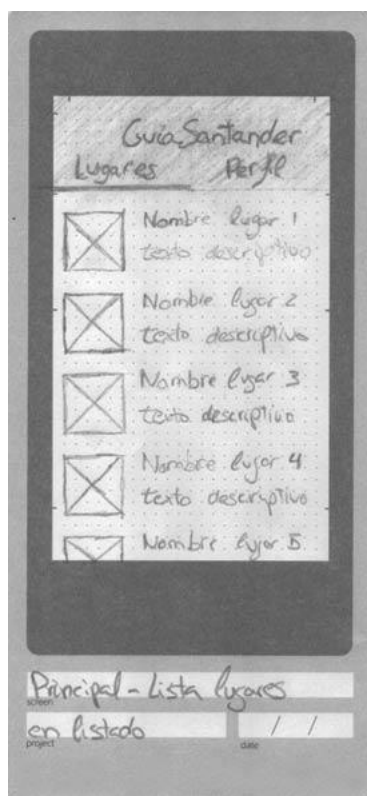 Guía Santander
Lugares Perfil
Nombre lugar 1
texto descriptivo
Nombre lugar 2
texto descriptivo
Nombre lugar 3
texto descriptivo
Nombre lugar 4
texto descriptivo
Nombre lugar 5
Principal - Lista lugares
screen
en listado / /
project date